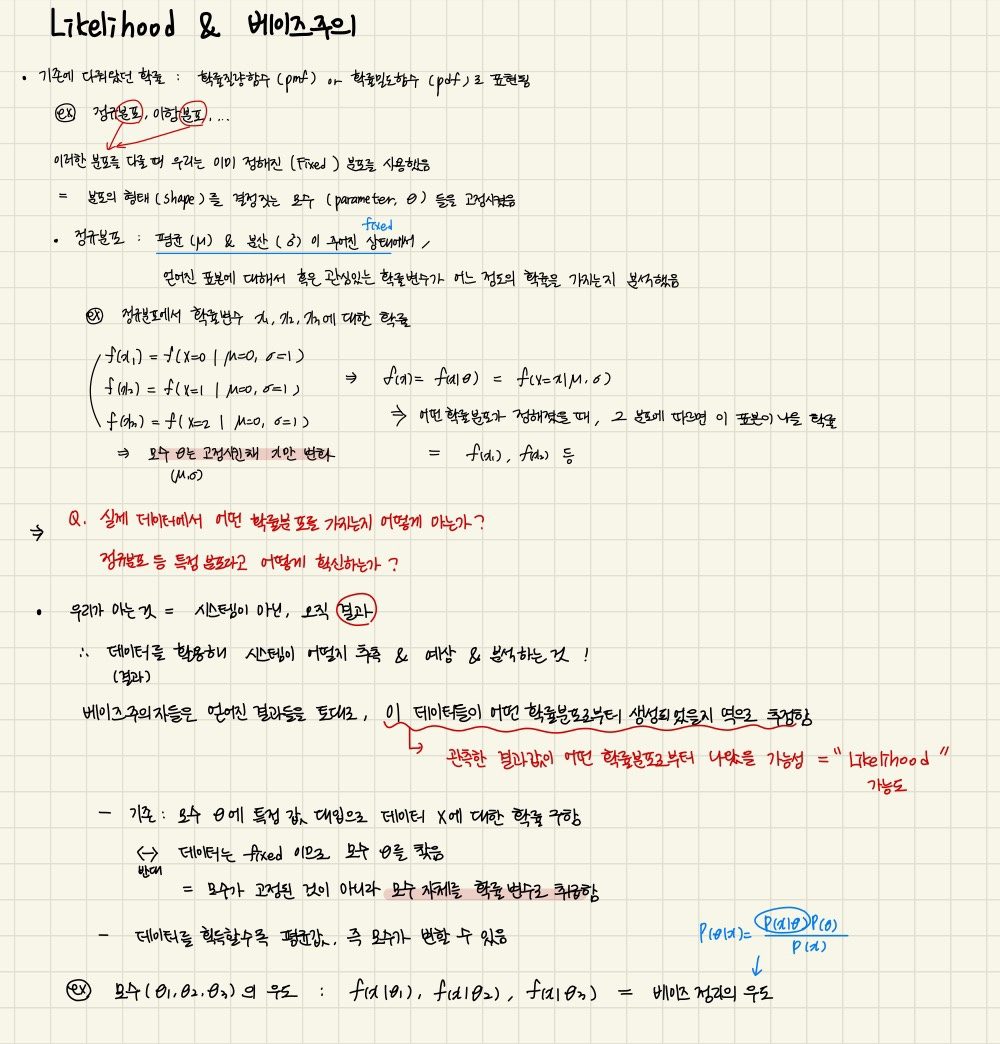 Likelihood & 베이즈주의
• 기존에 다뤄왔던 확률 : 확률질량함수 (pmf) or 확률밀도함수 (pdf)로 표현됨
ex 정규분포, 이항분포, ...
이러한 분포를 다룰 때 우리는 이미 정해진 (Fixed) 분포를 사용했음
= 분포의 형태 (shape)를 결정짓는 모수 (parameter, θ) 들을 고정시켰음
fixed
• 정규분포 : 평균 (μ) & 분산 (σ) 이 주어진 상태에서,
얻어진 표본에 대해서 혹은 관심있는 확률변수가 어느 정도의 확률을 가지는지 분석했음
ex 정규분포에서 확률변수 x₁, x₂, x₃에 대한 확률
f(x₁) = f(X=0 | μ=0, σ=1)
f(x₂) = f(X=1 | μ=0, σ=1) ⇒ f(x) = f(x|θ) = f(X=x|μ, σ)
f(x₃) = f(X=2 | μ=0, σ=1) ⇒ 어떤 확률분포가 정해졌을 때, 그 분포에 따르면 이 표본이 나올 확률
⇒ 모수 θ는 고정시킨채 x만 변화 = f(x₁), f(x₂) 등
(μ,σ)
⇒ Q. 실제 데이터에서 어떤 확률분포를 가지는지 어떻게 아는가?
정규분포 등 특정 분포라고 어떻게 확신하는가?
• 우리가 아는 것 = 시스템이 아닌, 오직 결과
∴ 데이터를 활용해 시스템이 어떨지 추측 & 예상 & 분석하는 것!
(결과)
베이즈주의자들은 얻어진 결과들을 토대로, 이 데이터들이 어떤 확률분포로부터 생성되었을지 역으로 추정함
↳ 관측한 결과값이 어떤 확률분포로부터 나왔을 가능성 = "Likelihood"
가능도
- 기존 : 모수 θ에 특정 값 대입으로 데이터 X에 대한 확률 구함
↔ 데이터는 fixed 이므로 모수 θ를 찾음
반대
= 모수가 고정된 것이 아니라 모수 자체를 확률 변수로 취급함
- 데이터를 획득할수록 평균값, 즉 모수가 변할 수 있음
P(θ|x) = P(x|θ)P(θ) / P(x)
↓
ex 모수(θ₁, θ₂, θ₃)의 우도 : f(x|θ₁), f(x|θ₂), f(x|θ₃) = 베이즈 정리의 우도